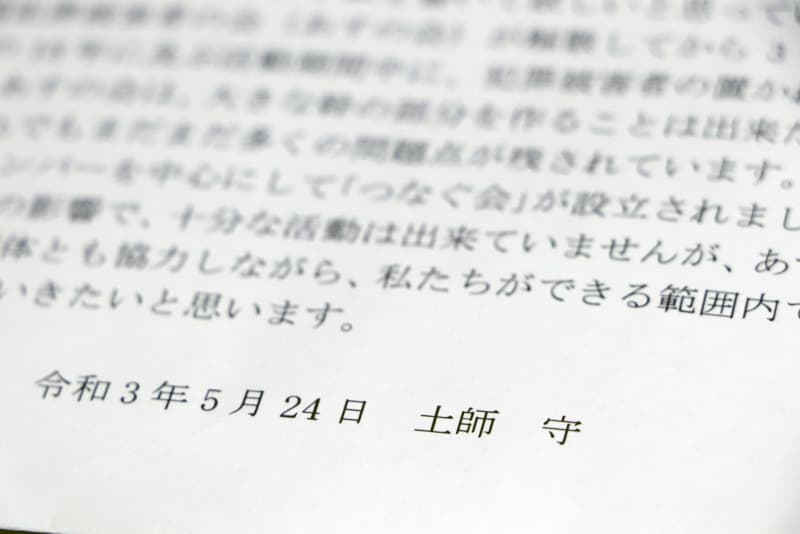 犯罪被害者の会(あすの会)が解散してから3
あすの会は、大きな幹の部分を作ることは出来た
でもまだまだ多くの問題点が残されています。
ンバーを中心にして「つなぐ会」が設立されまし
の影響で、十分な活動は出来ていませんが、あす
体とも協力しながら、私たちができる範囲内で
いきたいと思います。
令和3年5月24日 土師 守